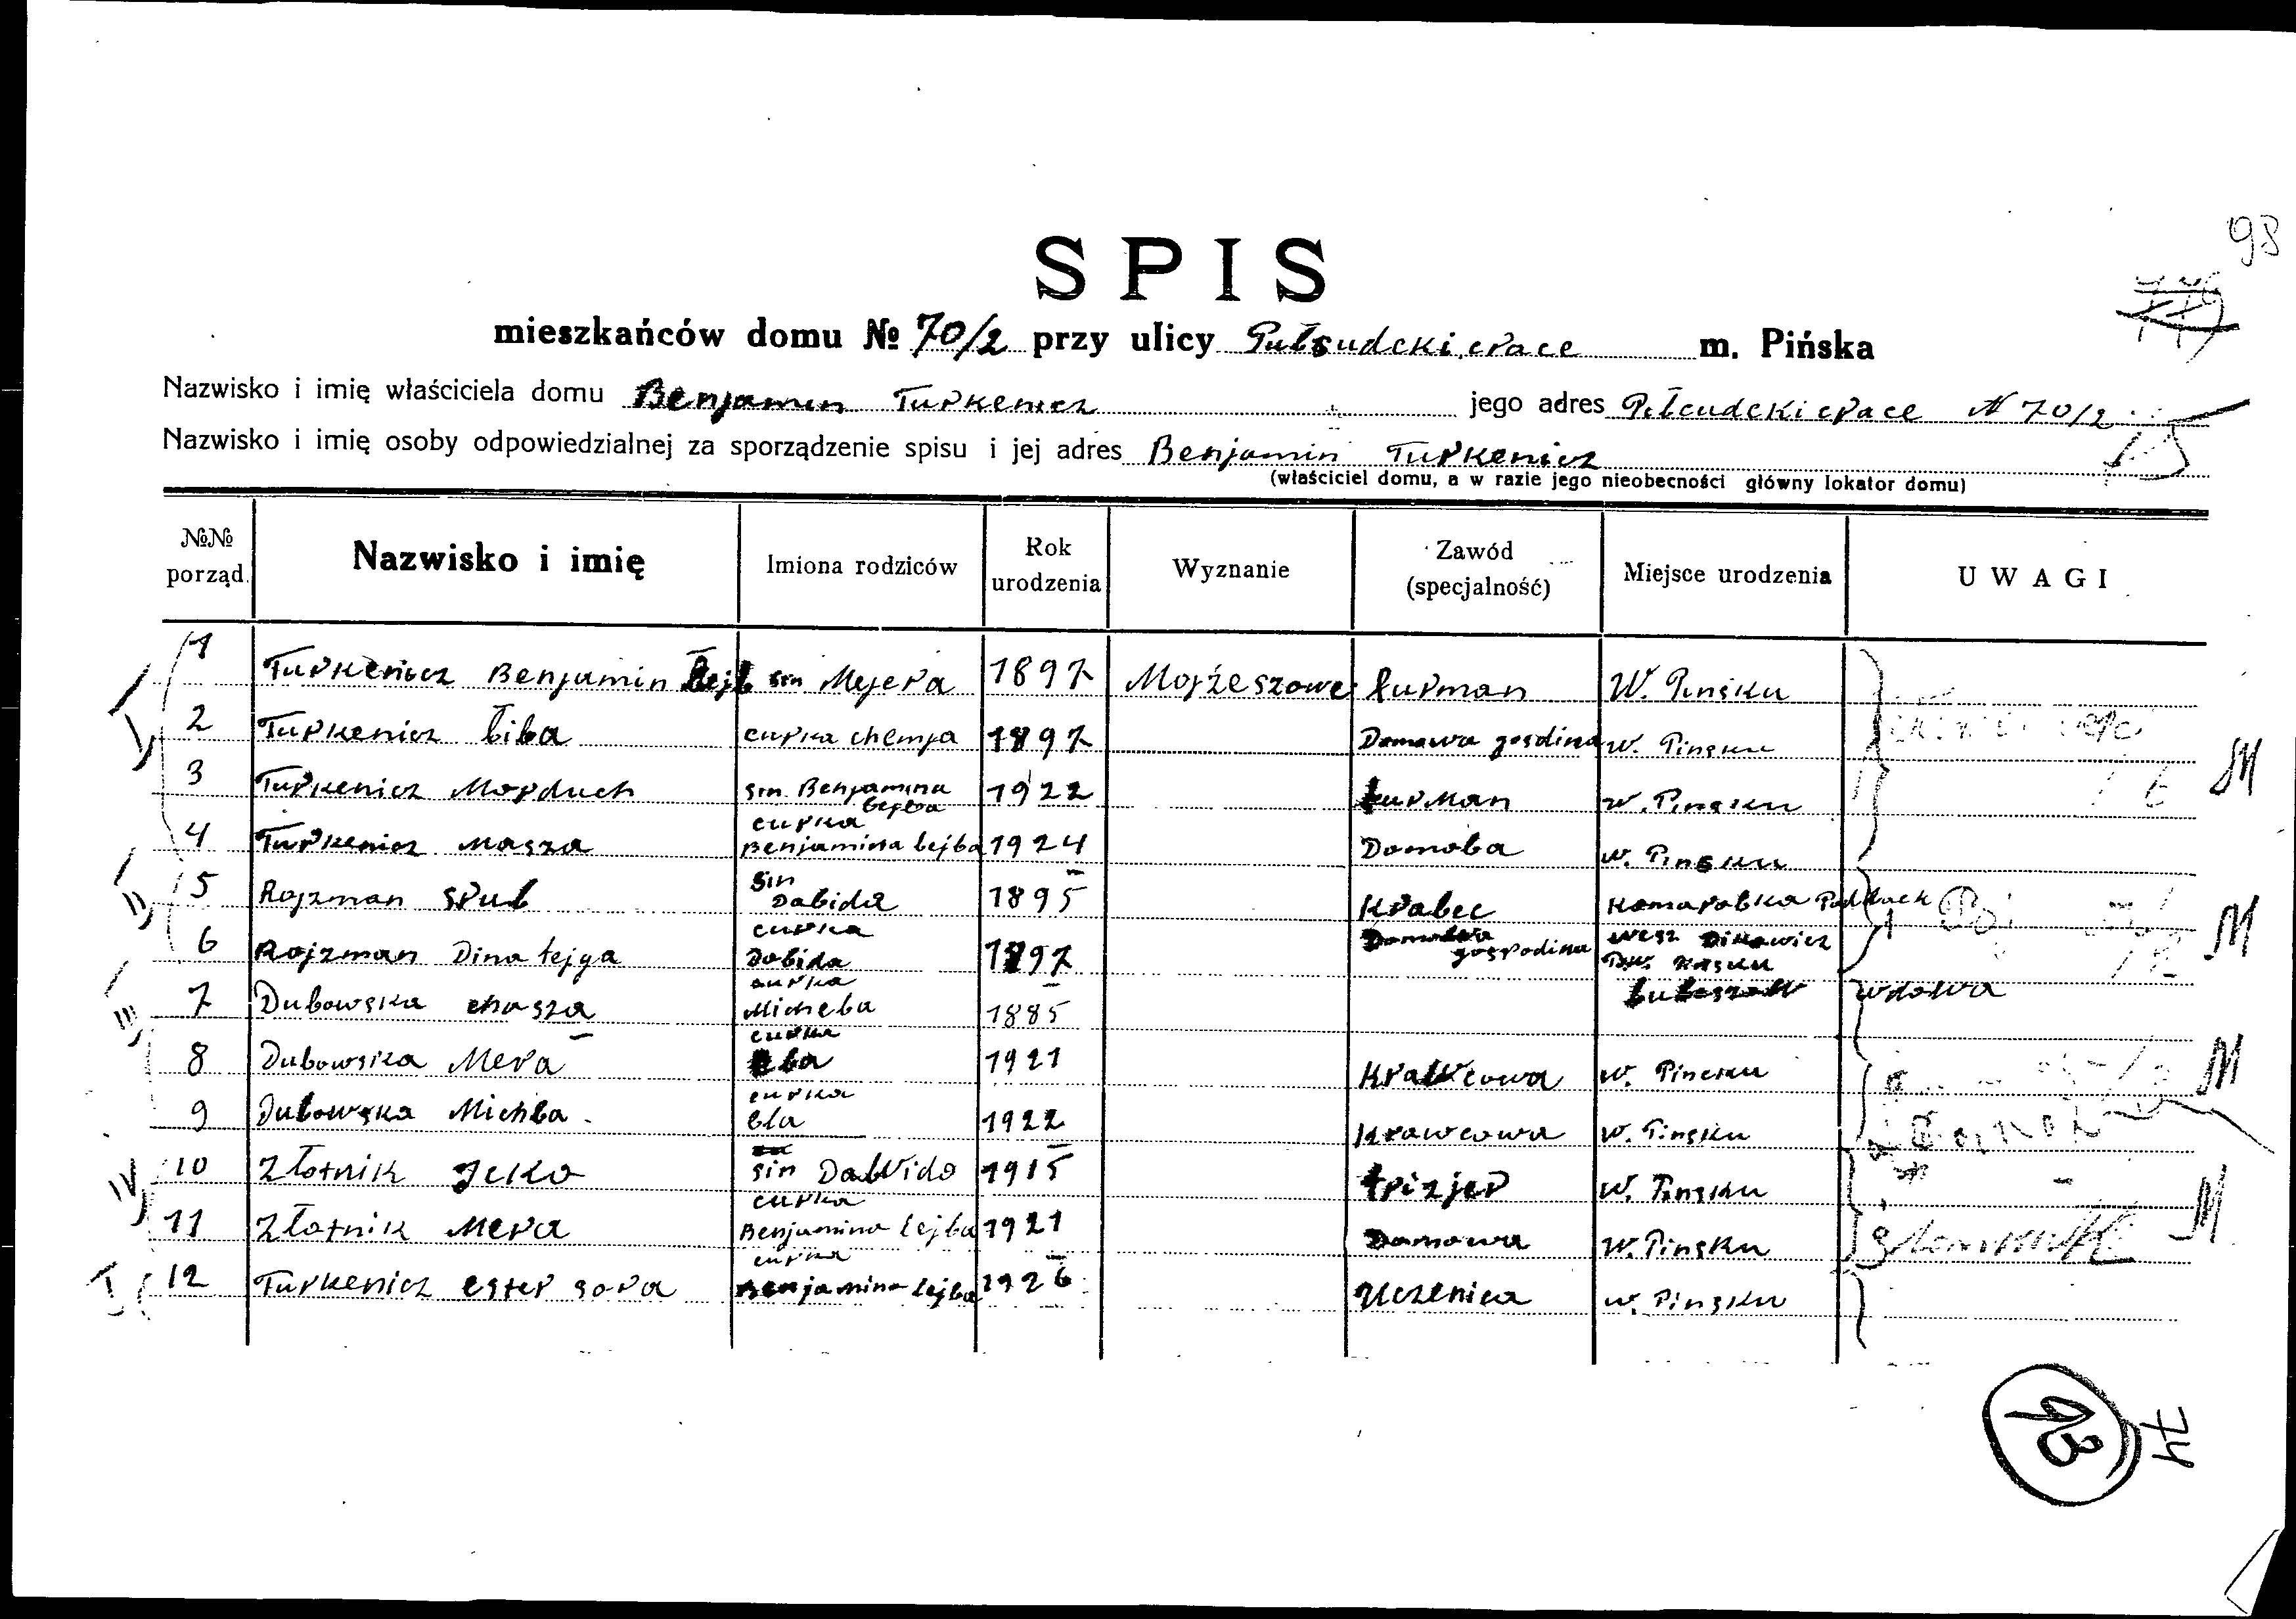 98
SPIS
mieszkańców domu № 70/2 przy ulicy m. Pińska
Nazwisko i imię właściciela domu Benjamin Turkenicz jego adres N 70/2
Nazwisko i imię osoby odpowiedzialnej za sporządzenie spisu i jej adres Benjamin Turkenicz
(właściciel domu, a w razie jego nieobecności główny lokator domu)
№№ porząd. Nazwisko i imię Imiona rodziców Rok urodzenia Wyznanie Zawód (specjalność) Miejsce urodzenia UWAGI
1 Turkenicz Benjamin Lejb sin Mejera 1897 Mojżeszowe furman W. Pinsku
2 Turkenicz Liba curka chemja 1897 Domowa gosdina w. Pinsku
3 Turkenicz Morduch sin Benjamina Lejba 1922 furman w. Pinsku M
4 Turkenicz Masza curka Benjamina Lejba 1924 Domoba w. Pinsku
5 Rojzman Srul sin Dabida 1895 Krabec
6 Rojzman Dina fejga curka Dabida 1897 Domowa gospodina M
7 Dubowska chasza curka Michela 1885 Lubeszow wdowa
8 Dubowska Mera curka 1921 Krawcowa w. Pinsku M
9 Dubowska Michla curka 1922 Krawcowa w. Pinsku
10 Złotnik Jcko sin Dawida 1915 frizjer w. Pinsku
11 Złotnik Mera curka Benjamina Lejba 1921 Domowa w. Pinsku M
12 Turkenicz ester sora curka Benjamina Lejba 1926 Uczenica w. Pinsku
93
74